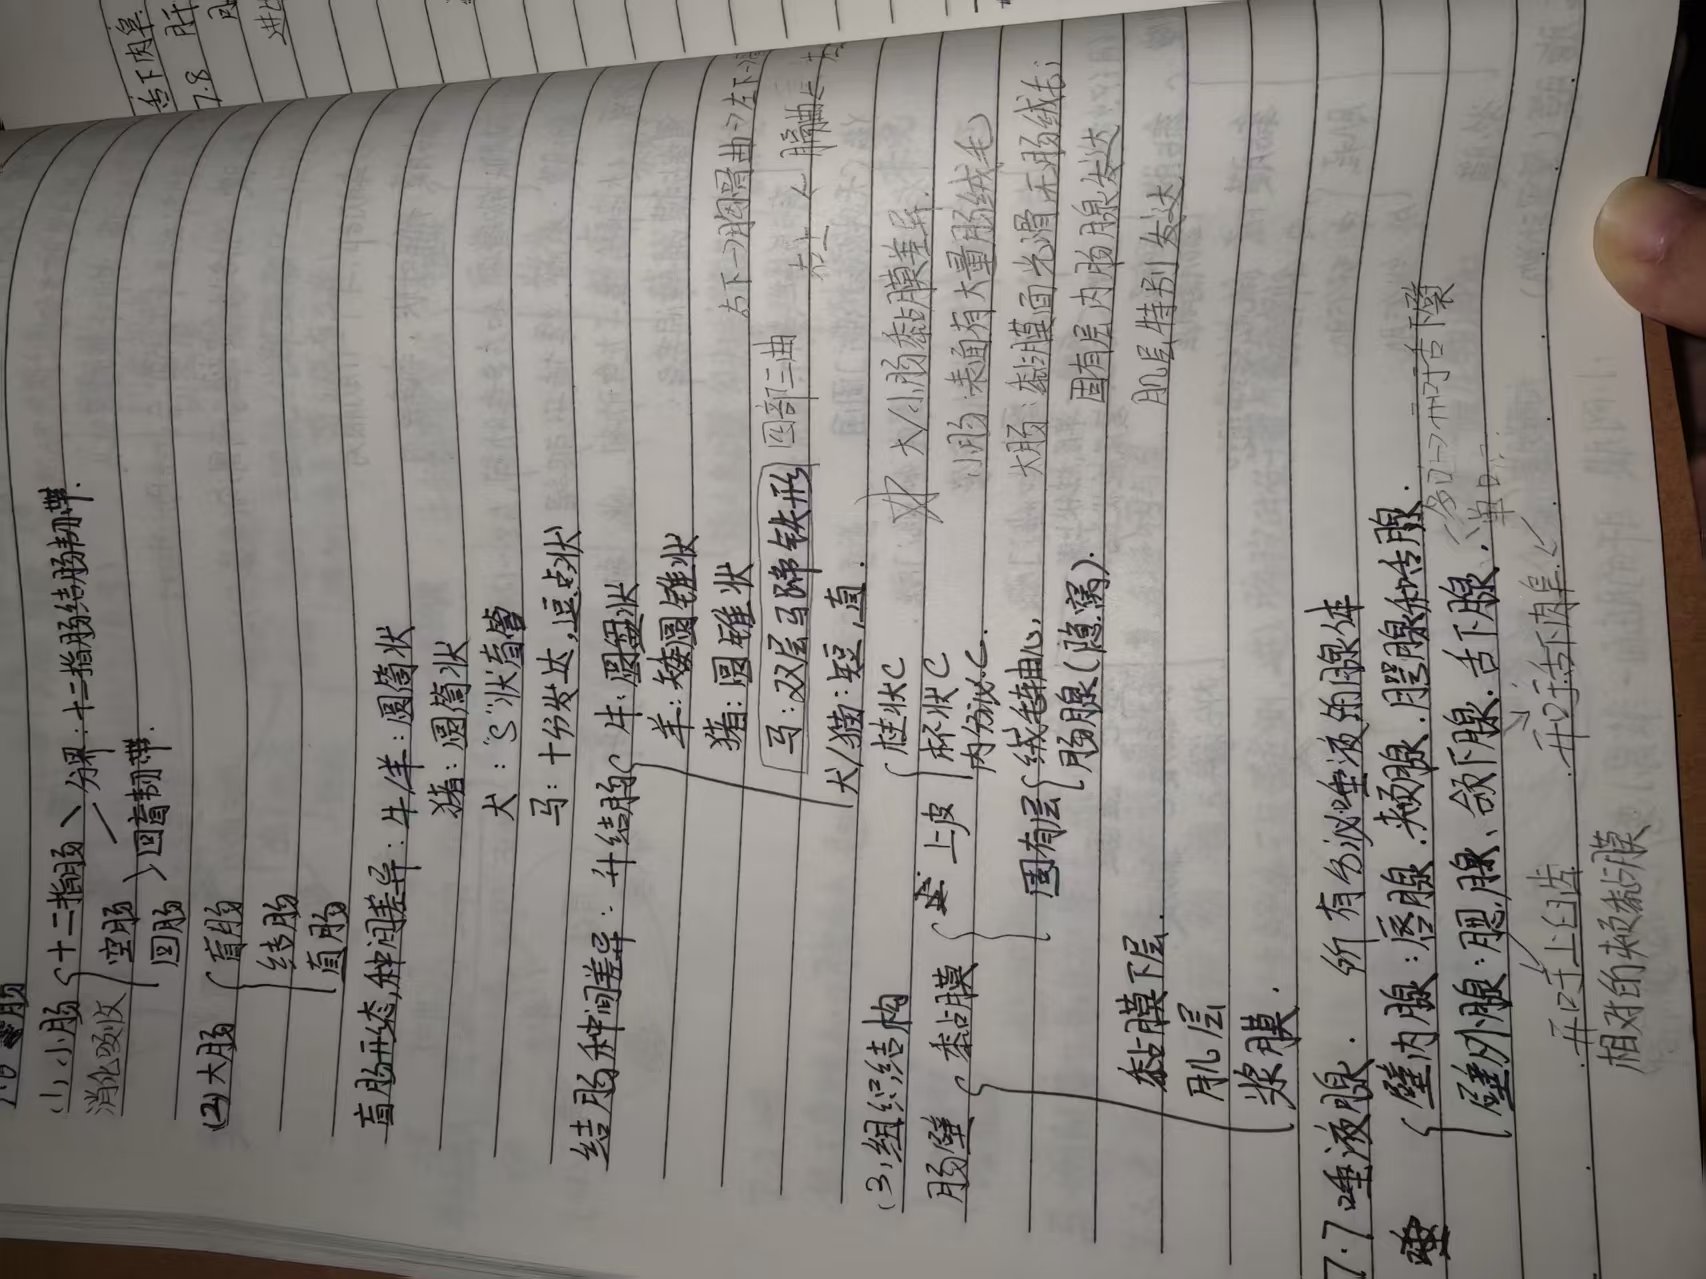 舌下肉阜
7.8 肝
7.6 肠
(1) 小肠 十二指肠 分界:十二指肠结肠韧带.
消化吸收 空肠 回盲韧带.
回肠
(2) 大肠 盲肠
结肠
直肠
盲肠形态,种间差异:牛/羊:圆筒状
猪:圆筒状
犬:"S"状盲管
马:十分发达,逗点状
结肠种间差异:升结肠 牛:圆盘状
羊:矮圆锥状
猪:圆锥状 右下→胸骨曲→左下→
马:双层马蹄铁形 四部三曲
右上 膈曲
犬/猫:短,直.
(3) 组织结构 柱状C 大/小肠黏膜差异.
肠壁 黏膜 上皮 杯状C 小肠:表面有大量肠绒毛
内分泌C. 大肠:黏膜面光滑无肠绒毛;
固有层 绒毛轴心, 固有层内肠腺发达
肠腺(隐窝). 肌层特别发达
黏膜下层.
肌层
浆膜.
7.7 唾液腺. 所有分泌唾液的腺体
壁内腺:唇腺.颊腺.腭腺和舌腺.
壁外腺:腮腺、颌下腺.舌下腺. 多口→开口于舌下襞
单口:
开口于上臼齿 开口于舌下肉阜.
相对的颊黏膜